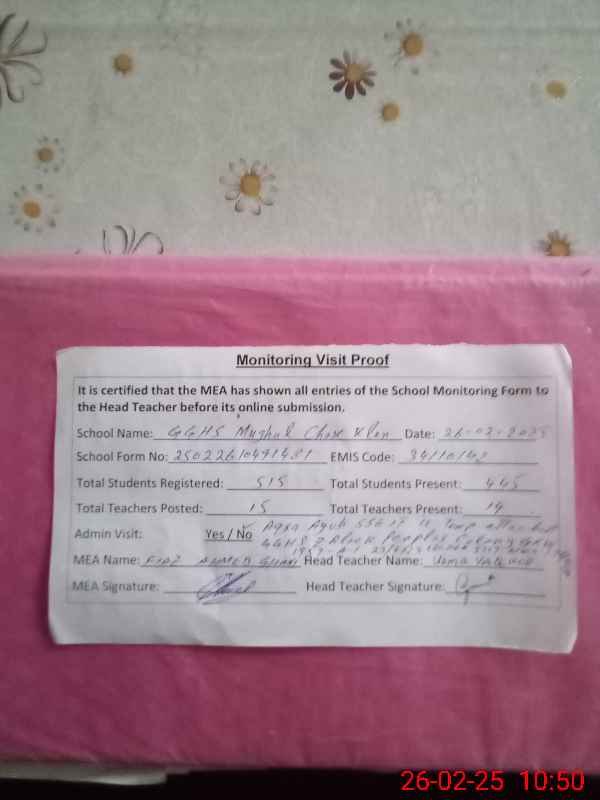 Monitoring Visit Proof
It is certified that the MEA has shown all entries of the School Monitoring Form to
the Head Teacher before its online submission.
School Name: GGHS Mughal Date: 26-02-2025
School Form No: EMIS Code:
Total Students Registered: 515 Total Students Present: 445
Total Teachers Posted: 15 Total Teachers Present: 14
Admin Visit: Yes / No Aqsa Ayub
GGHS Block Peoples Colony
MEA Name: Head Teacher Name: Uzma
MEA Signature: Head Teacher Signature:
26-02-25 10:50